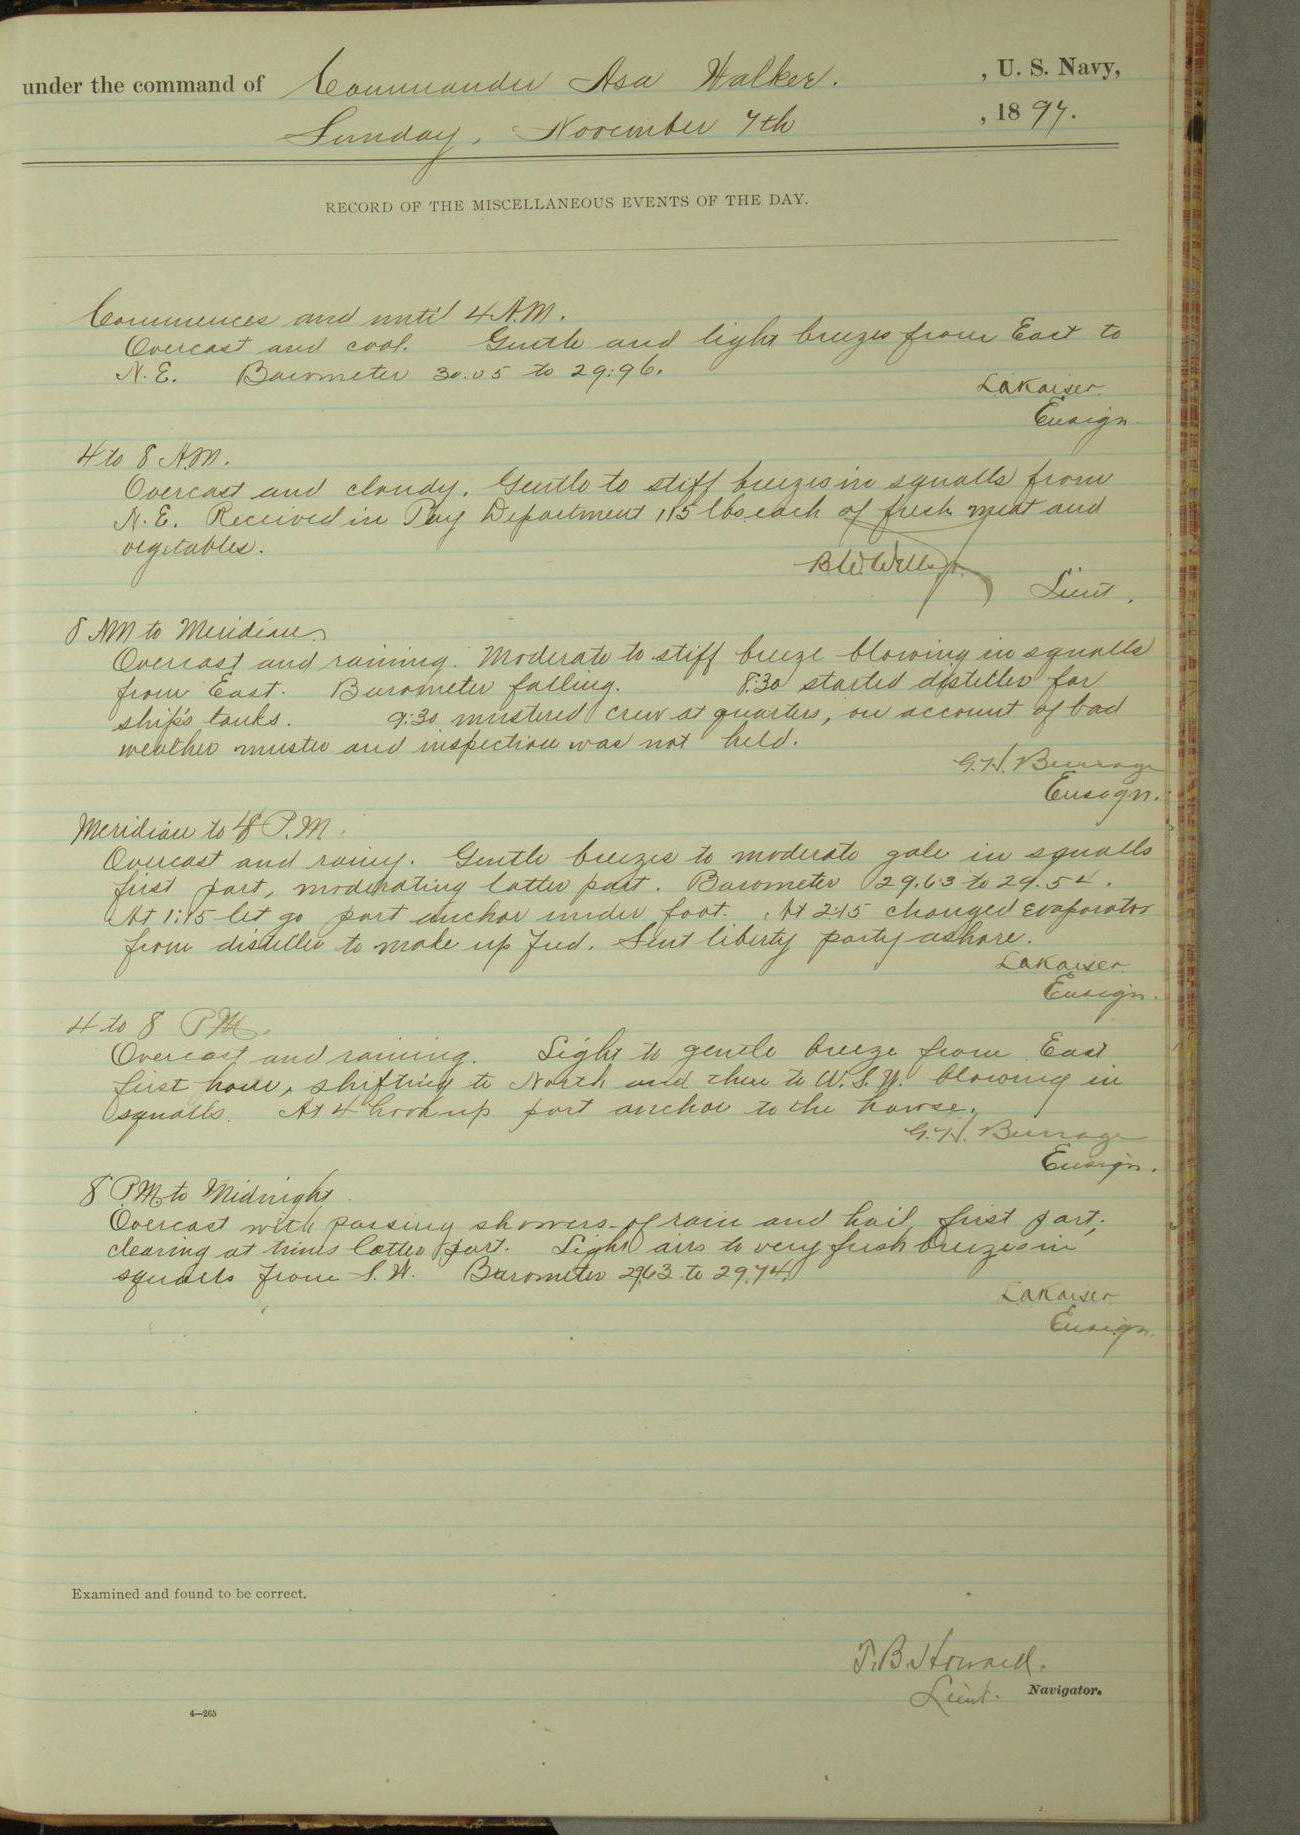 under the command of Commander Asa Walker. , U. S. Navy,
Sunday, November 7th , 1897.
RECORD OF THE MISCELLANEOUS EVENTS OF THE DAY.
Commences and until 4 A.M.
Overcast and cool. Gentle and light breezes from East to
N.E. Barometer 30.05 to 29.96.
L A Kaiser
Ensign.
4 to 8 A.M.
Overcast and cloudy. Gentle to stiff breezes in squalls from
N.E. Received in Pay Department 115 lbs each of fresh meat and
vegetables.
B.W. Wells Jr.
Lieut.
8 AM to Meridian
Overcast and raining. Moderate to stiff breeze blowing in squalls
from East. Barometer falling. 8:30 started distiller for
ship's tanks. 9:30 mustered crew at quarters, on account of bad
weather muster and inspection was not held.
G.H. Burrage
Ensign.
Meridian to 4 P.M.
Overcast and rainy. Gentle breezes to moderate gale in squalls
first part, moderating latter part. Barometer 29.63 to 29.54.
At 1:15 let go port anchor under foot. At 2:15 changed evaporator
from distiller to make up feed. Sent liberty party ashore.
L A Kaiser
Ensign.
4 to 8 PM.
Overcast and raining. Light to gentle breeze from East
first hour, shifting to North and then to W.S.W. blowing in
squalls. At 4 hook up port anchor to the hawse.
G.H. Burrage
Ensign.
8 PM to Midnight.
Overcast with passing showers of rain and hail, first part;
clearing at times latter part. Light airs to very fresh breezes in
squalls from S.W. Barometer 29.63 to 29.74.
L A Kaiser
Ensign.
Examined and found to be correct.
T.B. Howard.
Lieut. Navigator.
4—265